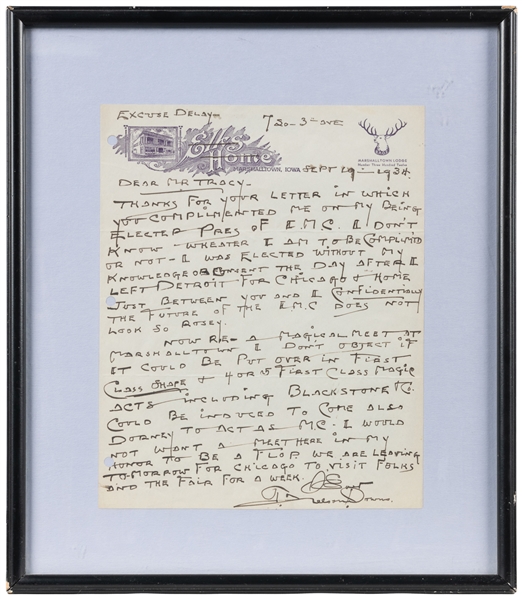 EXCUSE DELAY- 7 SO- 3RD AVE
Elks Home
MARSHALLTOWN, IOWA
MARSHALLTOWN LODGE
Number Three Hundred Twelve
SEPT 19- 1934.
DEAR MR TRACY-
THANKS FOR YOUR LETTER IN WHICH
YOU COMPLIMENTED ME ON MY BEING
ELECTED PRES OF I.M.C. I DON'T
KNOW - WHEATER I AM TO BE COMPLIM'D
OR NOT - I WAS ELECTED WITHOUT MY
KNOWLEDGE OR CONSENT THE DAY AFTER I
LEFT DETROIT FOR CHICAGO & HOME
JUST BETWEEN YOU AND I CONFIDENTIALLY
THE FUTURE OF THE I.M.C DOES NOT
LOOK SO ROSEY.
NOW RE- A MAGICAL MEET AT
MARSHALLTOWN I DON'T OBJECT IF
IT COULD BE PUT OVER IN FIRST
CLASS SHAPE & 4 OR 5 FIRST CLASS MAGIC
ACTS INCLUDING BLACKSTONE & CO.
COULD BE INDUCED TO COME ALSO
DORNEY TO ACT AS M.C. I WOULD
NOT WANT A MEET HERE IN MY
HONOR TO BE A FLOP. WE ARE LEAVING
TO-MORROW FOR CHICAGO TO VISIT FOLKS
AND THE FAIR FOR A WEEK.
T. Nelson Downs.